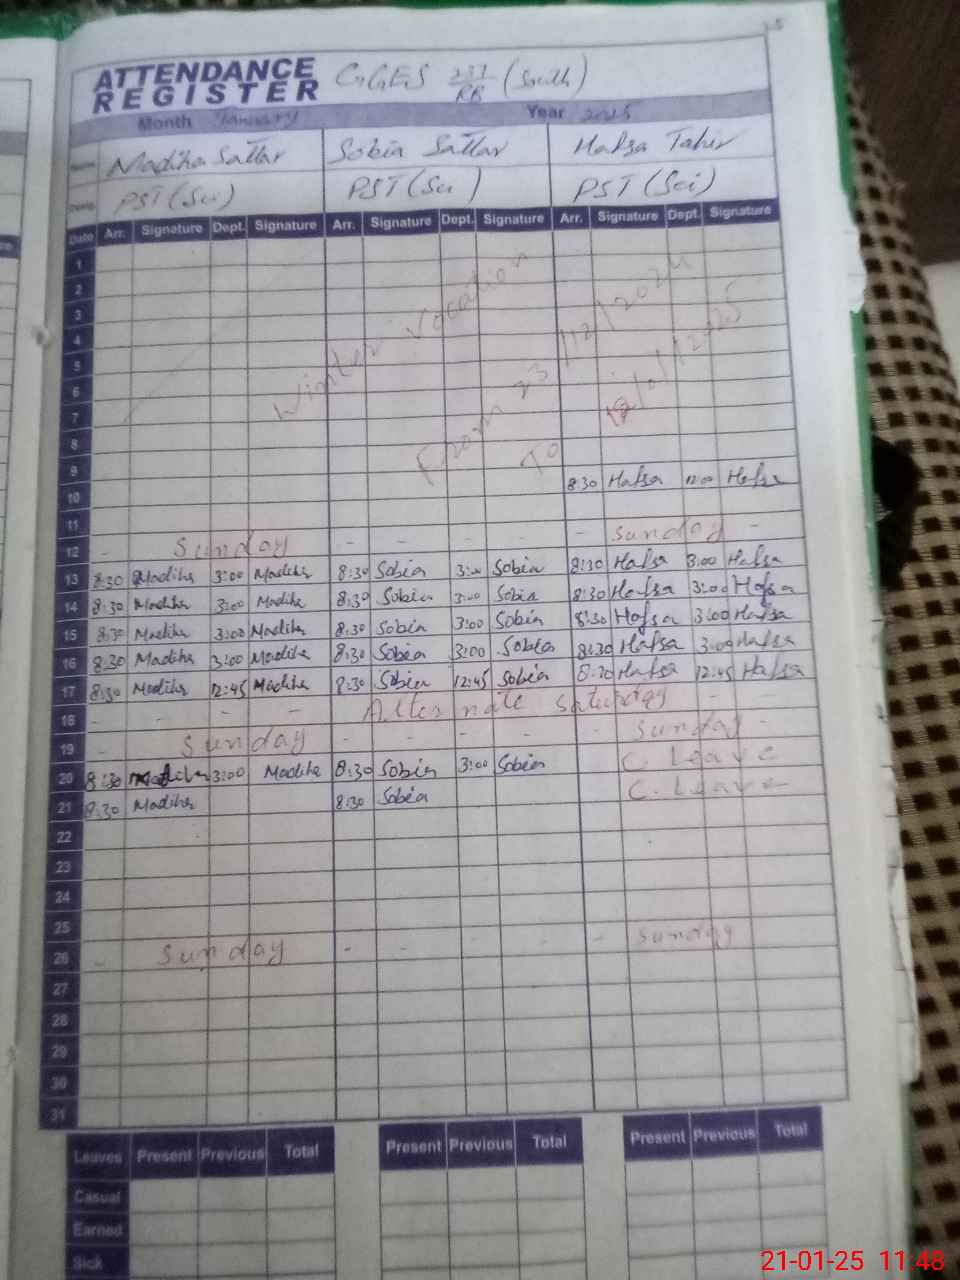 ATTENDANCE REGISTER GGES 237/RB (South)
Month January Year 2025
Madiha Sattar Sobia Sattar Hafsa Tahir
PST (Sci) PST (Sci) PST (Sci)
Date Arr. Signature Dept. Signature Arr. Signature Dept. Signature Arr. Signature Dept. Signature
1
2
3
4
5
6
7
8
9
Winter Vocation
From 23/12/2024
To /01/2025
10 8:30 Hafsa 12:00 Hafsa
11
12 - Sunday - - - - - Sunday -
13 8:30 Madiha 3:00 Madiha 8:30 Sobia 3:00 Sobia 8:30 Hafsa 3:00 Hafsa
14 8:30 Madiha 3:00 Madiha 8:30 Sobia 3:00 Sobia 8:30 Hafsa 3:00 Hafsa
15 8:30 Madiha 3:00 Madiha 8:30 Sobia 3:00 Sobia 8:30 Hafsa 3:00 Hafsa
16 8:30 Madiha 3:00 Madiha 8:30 Sobia 3:00 Sobia 8:30 Hafsa 3:00 Hafsa
17 8:30 Madiha 12:45 Madiha 8:30 Sobia 12:45 Sobia 8:30 Hafsa 12:45 Hafsa
18 - - - - Alternate Saturday - -
19 - Sunday - - - - - Sunday -
20 8:30 Madiha 3:00 Madiha 8:30 Sobia 3:00 Sobia C. Leave
21 8:30 Madiha 8:30 Sobia C. Leave
22
23
24
25
26 - Sunday - - - - - Sunday
27
28
29
30
31
Leaves Present Previous Total Present Previous Total Present Previous Total
Casual
Earned
Sick
21-01-25 11:48